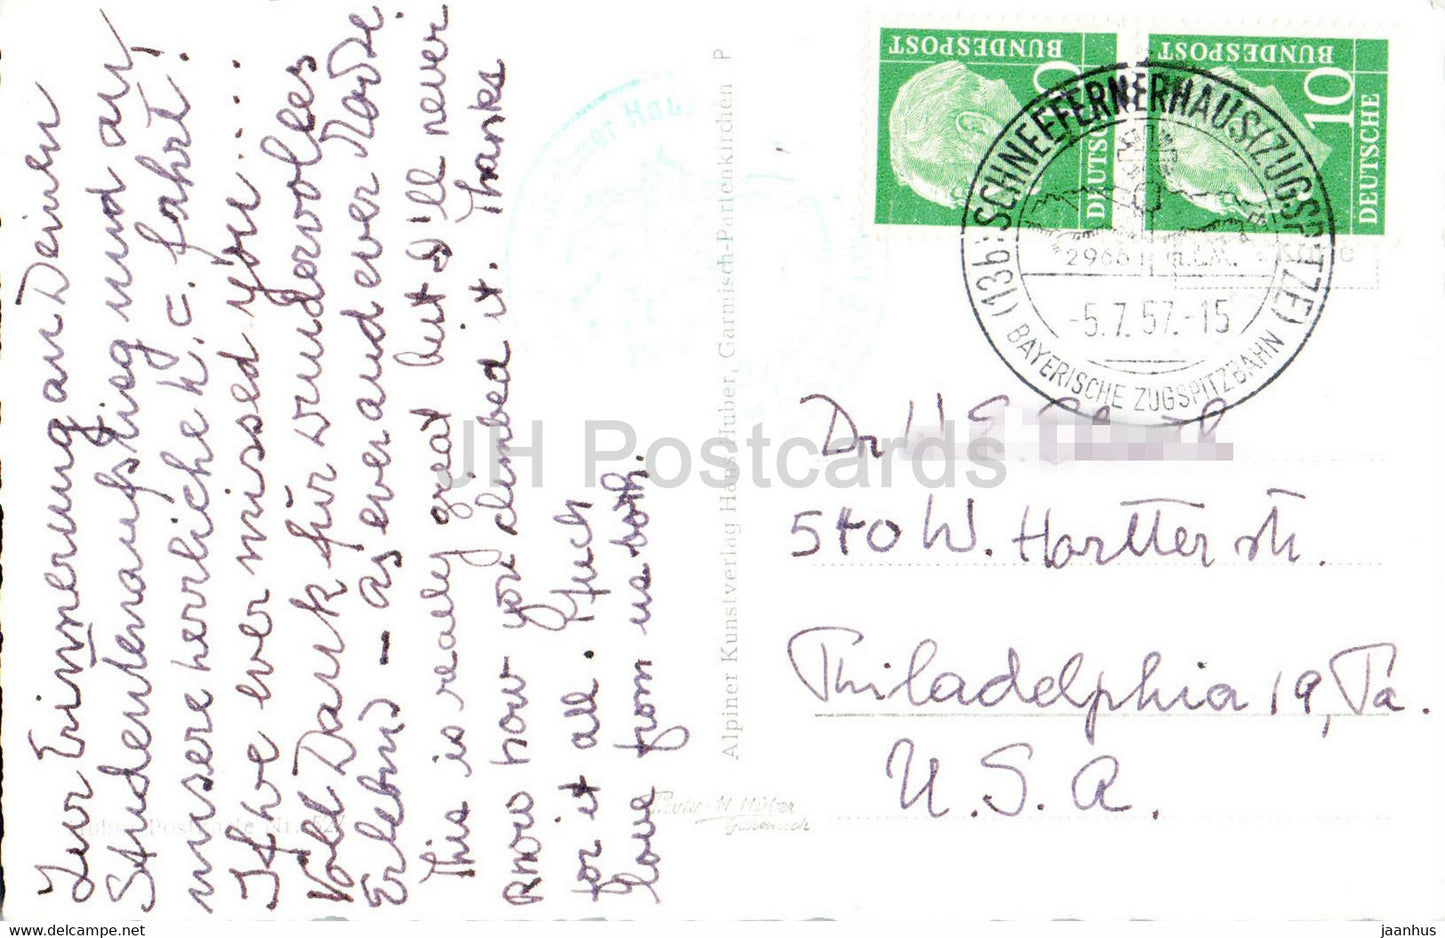 Zur Erinnerung an Deinen
Studentenaufstieg und an
unsere herrliche K. = fahrt!
If we ever missed you....
Voll Dank für wundervolles
Erlebnis - as ever and ever
This is really great but I'll never
know how you climbed it. Thanks
for it all. Much
love from us both.
Alpiner Kunstverlag Hans Huber, Garmisch-Partenkirchen P
Photo-W. Huber
Garmisch
Hubra Postkarte Nr. 527
DEUTSCHE
BUNDESPOST
10
DEUTSCHE
BUNDESPOST
10
(13b) SCHNEEFERNERHAUS (ZUGSPITZE)
2966 m
-5.7.57.-15
BAYERISCHE ZUGSPITZBAHN
Dr W E
540 W. Hortter str.
Philadelphia 19, Pa.
U.S.A.
JH Postcards
www.hippostcard.com
jaanhus